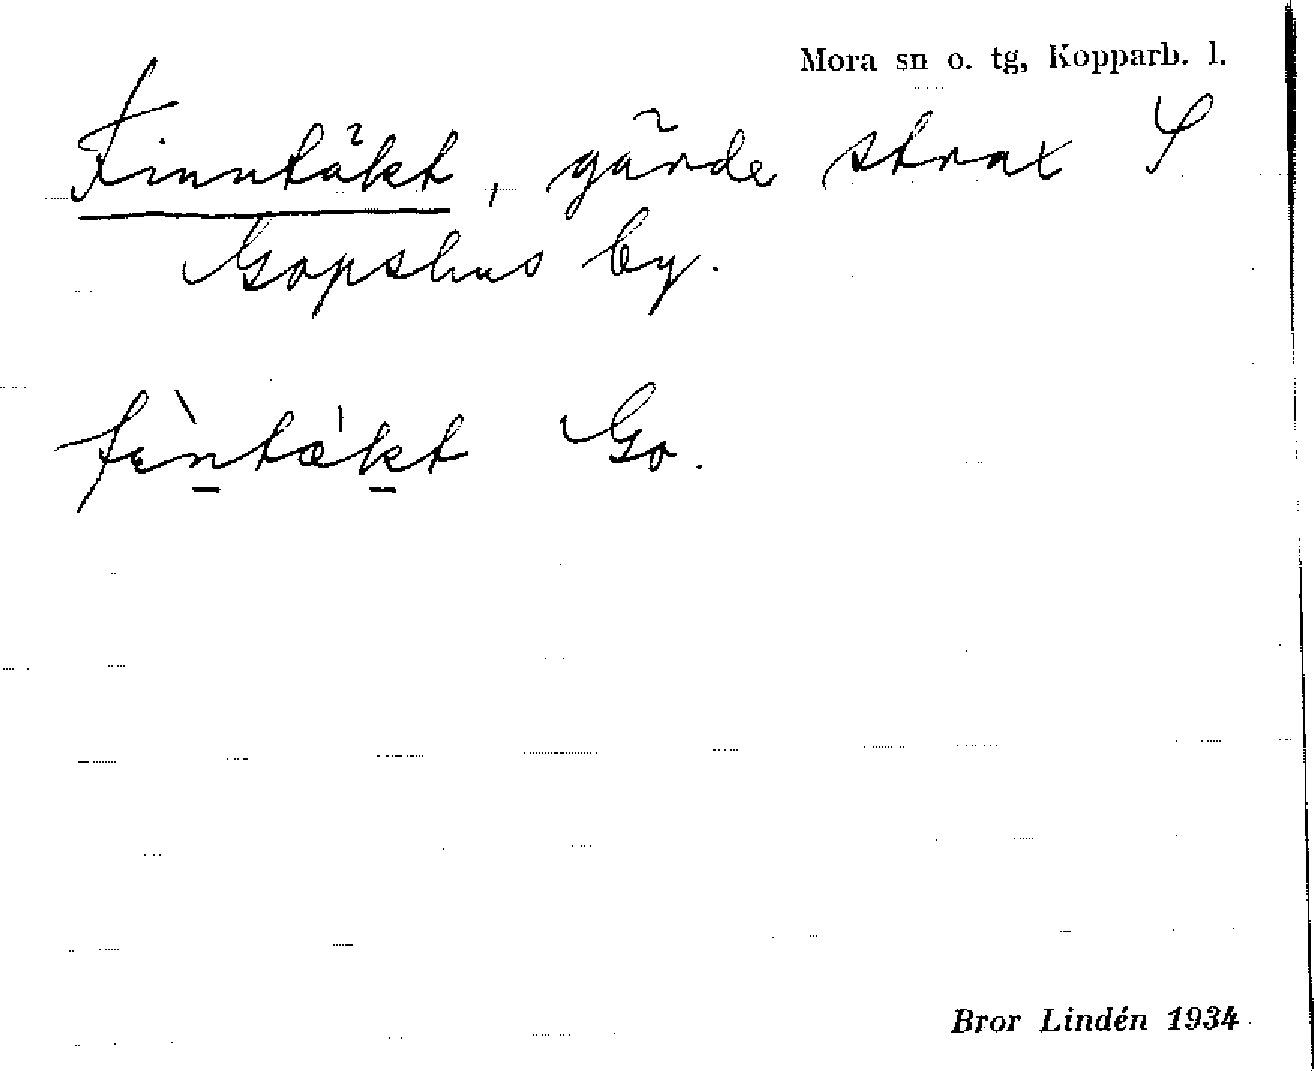 Mora sn o. tg, Kopparb. l.
Finntäkt, gärde strax S
Gopshus by.
fèntǽkt Go.
Bror Lindén 1934